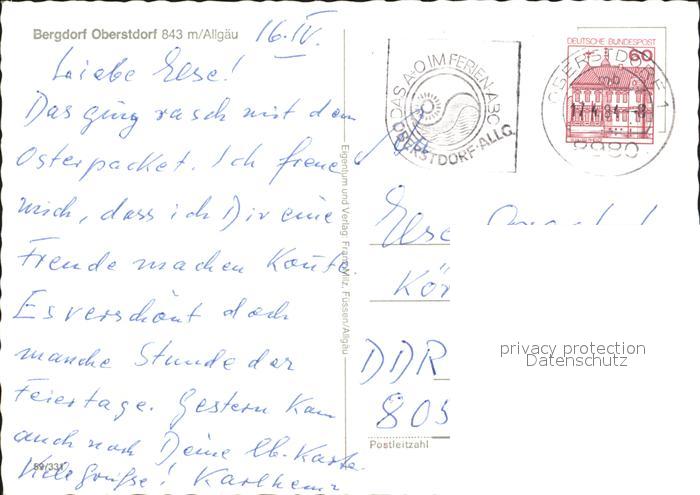 Bergdorf Oberstdorf 843 m/Allgäu
16. IV.
Liebe Else!
Das ging rasch mit dem
Osterpacket. Ich freue
mich, dass ich Dir eine
Freude machen konte.
Es verschönt doch
manche Stunde der
Feiertage. Gestern kam
auch noch Deine lb. Karte.
Viele Grüße! Karlheinz
59/331
Eigentum und Verlag: Franz Milz, Füssen/Allgäu
DAS A+O IM FERIEN-ABC
OBERSTDORF-ALLG.
DEUTSCHE BUNDESPOST
60
OBERSTDORF 1
17.4.84
8980
Else
Kör
DDR
805
Postleitzahl
privacy protection
Datenschutz